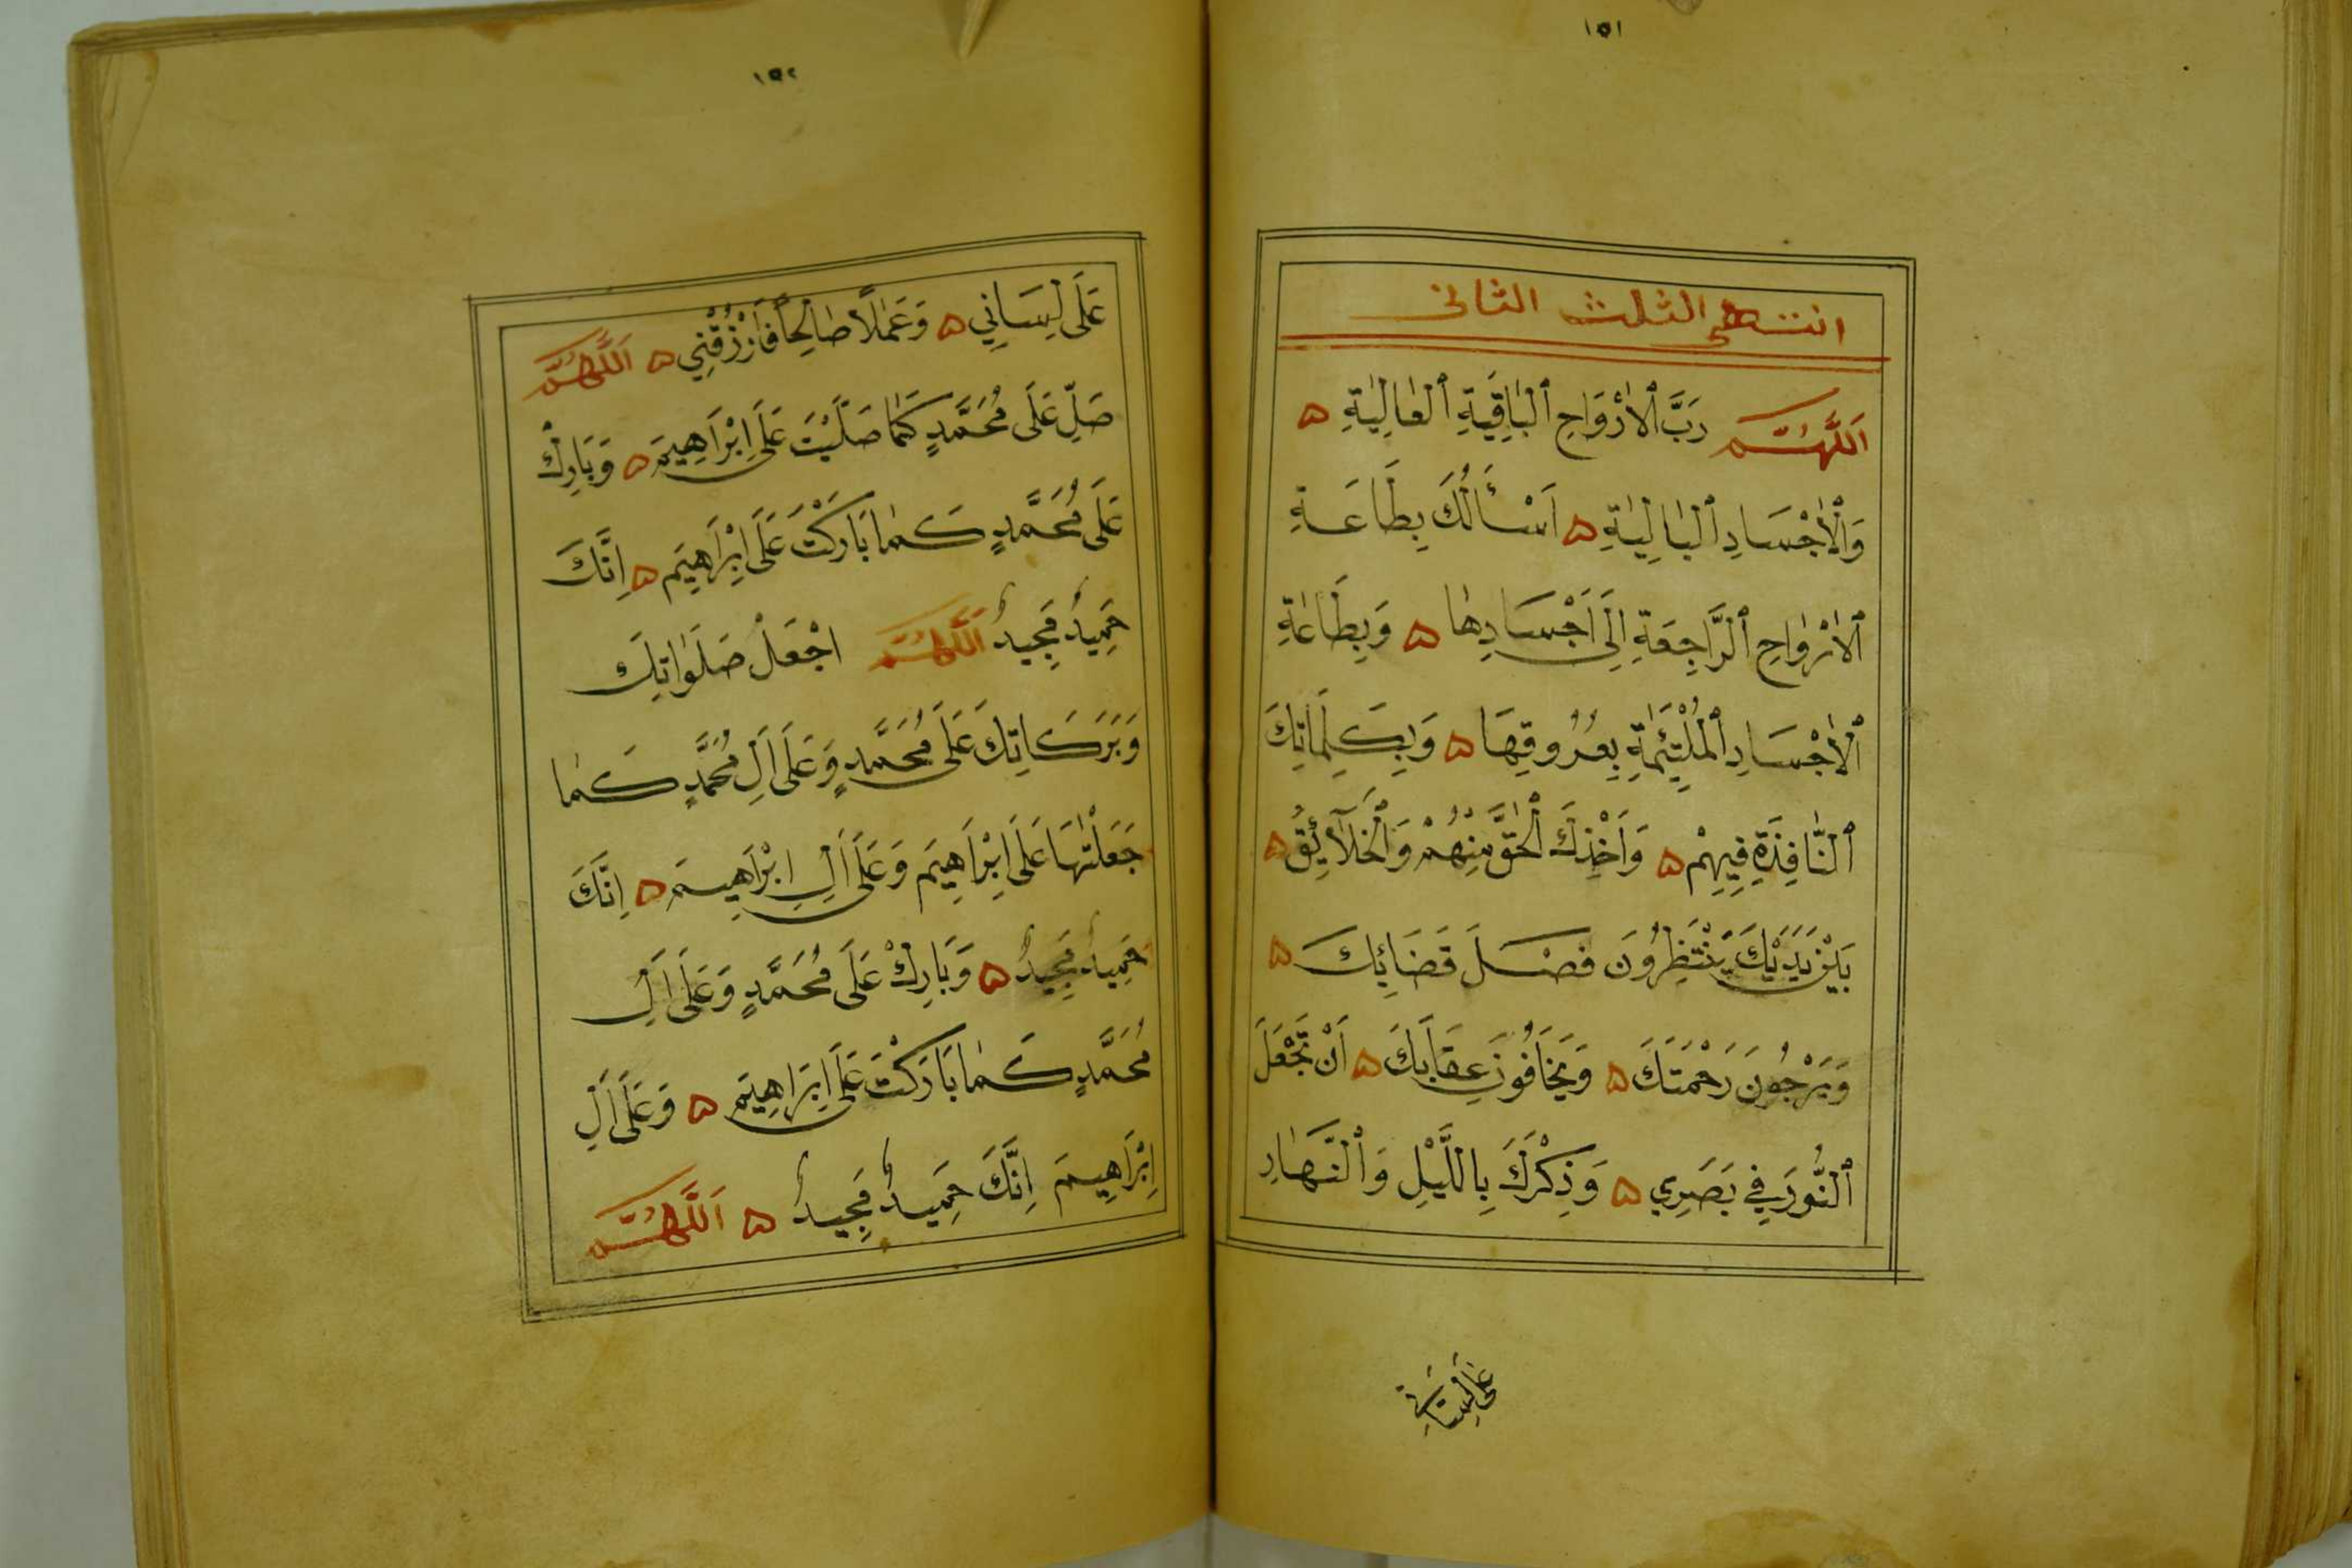 ١٥١
انتهى الثلث الثانى
اَللّٰهُمَّ رَبَّ ٱلْاَرْوَاحِ ٱلْبَاقِيَةِ ٱلْعَالِيَةِ ه
وَٱلْاَجْسَادِ ٱلْبَالِيَةِ ه اَسْأَلُكَ بِطَاعَةِ
ٱلْاَرْوَاحِ ٱلرَّاجِعَةِ اِلَى اَجْسَادِهَا ه وَبِطَاعَةِ
ٱلْاَجْسَادِ ٱلْمُلْتَئِمَةِ بِعُرُوقِهَا ه وَبِكَلِمَاتِكَ
ٱلنَّافِذَةِ فِيهِمْ ه وَاَخْذِكَ ٱلْحَقَّ مِنْهُمْ وَٱلْخَلَآئِقُ ه
بَيْنَ يَدَيْكَ يَنْتَظِرُونَ فَصْلَ قَضَائِكَ ه
وَيَرْجُونَ رَحْمَتَكَ ه وَيَخَافُونَ عِقَابَكَ ه اَنْ تَجْعَلَ
ٱلنُّورَ فِي بَصَرِي ه وَذِكْرَكَ بِاللَّيْلِ وَٱلنَّهَارِ
عَلَى لِسَانِي
١٥٢
عَلَى لِسَانِي ه وَعَمَلًا صَالِحًا فَارْزُقْنِي ه اَللّٰهُمَّ
صَلِّ عَلَى مُحَمَّدٍ كَمَا صَلَّيْتَ عَلَى اِبْرَاهِيمَ ه وَبَارِكْ
عَلَى مُحَمَّدٍ كَمَا بَارَكْتَ عَلَى اِبْرَاهِيمَ ه اِنَّكَ
حَمِيدٌ مَجِيدٌ اَللّٰهُمَّ اجْعَلْ صَلَوَاتِكَ
وَبَرَكَاتِكَ عَلَى مُحَمَّدٍ وَعَلَى اَلِ مُحَمَّدٍ كَمَا
جَعَلْتَهَا عَلَى اِبْرَاهِيمَ وَعَلَى اَلِ اِبْرَاهِيمَ ه اِنَّكَ
حَمِيدٌ مَجِيدٌ ه وَبَارِكْ عَلَى مُحَمَّدٍ وَعَلَى اَلِ
مُحَمَّدٍ كَمَا بَارَكْتَ عَلَى اِبْرَاهِيمَ ه وَعَلَى اَلِ
اِبْرَاهِيمَ اِنَّكَ حَمِيدٌ مَجِيدٌ ه اَللّٰهُمَّ